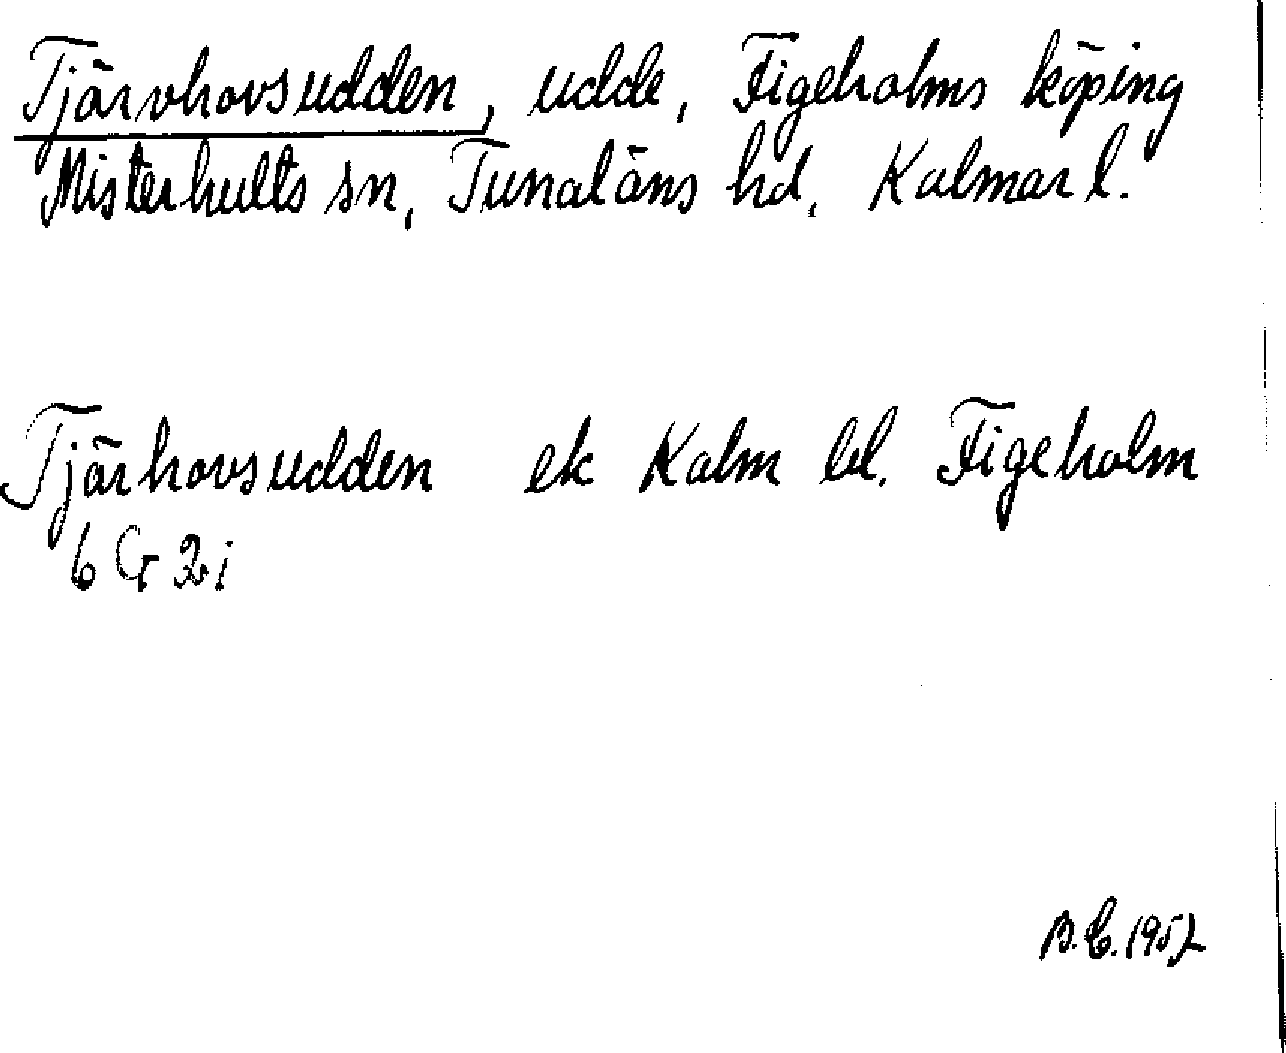 Tjärvhovsudden, udde, Figeholms köping
Misterhults sn, Tunaläns hd, Kalmar l.
Tjärhovsudden ek Kalm bl. Figeholm
6 G 2 i
B.E. 1952